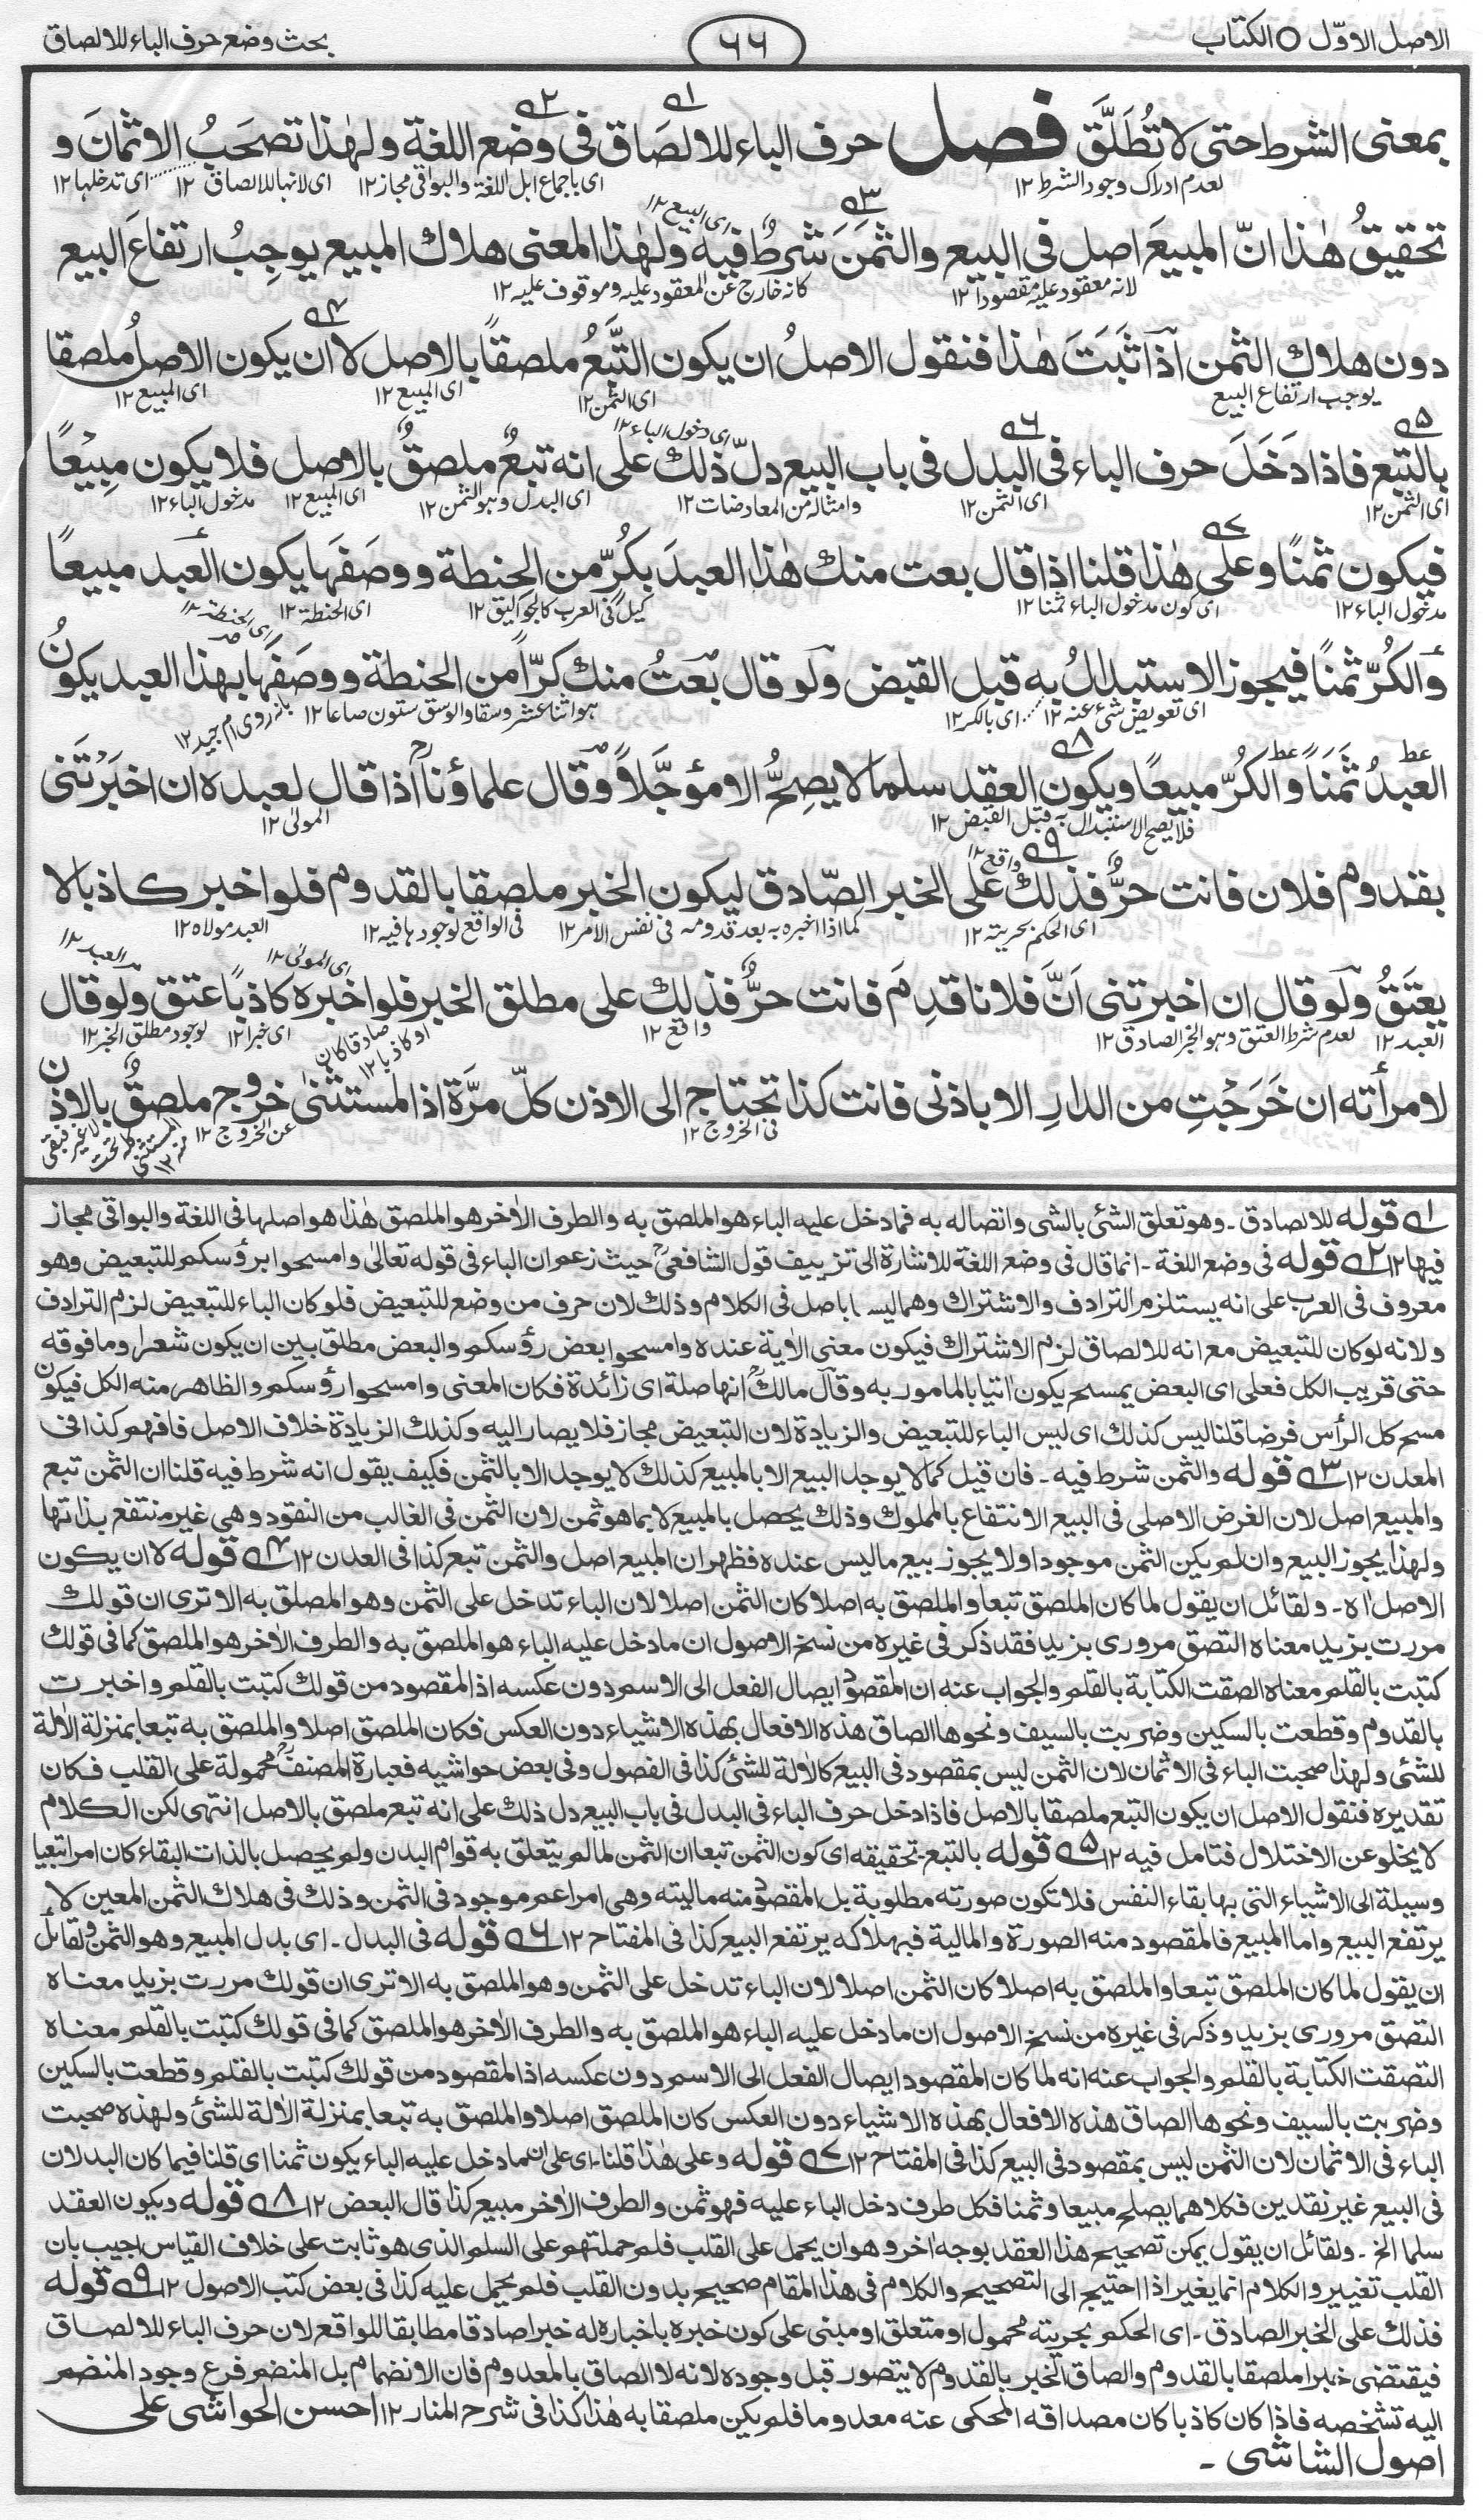 الاصل الاوّل ○ الكتاب
٦٦
بحث وضع حرف الباء للالصاق
بمعنى الشرط حتى لا تُطَلَّق فصل حرف الباء للالصَاق فى وضع اللغة ولهٰذا تصحَبُ الاثمانَ و
لعدم ادراك وجود الشرط ١٢ اى باجماع اہل اللغة والبواقى مجاز ١٢ اى لانها للالصاق ١٢ اى تدخلها ١٢
تحقيقُ هٰذا انّ المبيعَ اصل فى البيع والثمَنَ شرطٌ فيه ولهٰذا المعنى هلاك المبيع يوجِبُ ارتفاعَ البيع
اى البيع ١٢
لانه معقود عليه مقصودا ١٢ كانه خارج عن المعقود عليه وموقوف عليه ١٢
دون هلاك الثمن اذا ثَبَتَ هٰذا فنقول الاصلُ ان يكون التَّبَعُ ملصقًا بالاصل لا ان يكون الاصلُ ملصقا
يوجب ارتفاع البيع اى الثمن ١٢ اى المبيع ١٢ اى المبيع ١٢
بالتبع فاذا دَخَلَ حرف الباء فى البدل فى باب البيع دلّ ذلك على انه تبعٌ ملصقٌ بالاصل فلا يكون مبيعًا
اى دخول الباء ١٢
اى الثمن ١٢ اى الثمن ١٢ وامثاله من المعاوضات ١٢ اى البدل وہو الثمن ١٢ اى المبيع ١٢ مدخول الباء ١٢
فيكون ثمنًا وعلى هٰذا قلنا اذا قال بعت منك هٰذا العبدَ بكُرٍّ من الحنطة ووصَفَها يكون العبد مبيعًا
مدخول الباء ١٢ اى كون مدخول الباء ثمنا ١٢ كيل فى العرب كالجواليق ١٢ اى الحنطة ١٢
والكُرّ ثمنًا فيجوز الاستبدالُ به قبل القبض ولو قال بعتُ منك كرّاً من الحنطة ووصَفَها بهذا العبد يكونُ
اى الحنطة ١٢
اى تعويض شئ عنه ١٢ اى بالكر ١٢ ہو اثنا عشر وسقا والوسق ستون صاعا ١٢
العبدُ ثمَنًا والكُرّ مبيعًا ويكون العقد سلما لا يصِحُّ الا مؤجَّلاً وقال علماؤنا اذا قال لعبده ان اخبَرْتَنى
فلا يصح الاستبدال به قبل القبض ١٢ المولى ١٢
بقدوم فلان فانت حرٌّ فذلك على الخبر الصّادق ليكون الخبر ملصقا بالقدوم فلو اخبر كاذبا لا
واقع ١٢
اى الحكم بحريته ١٢ كما اذا اخبره به بعد قدومه فى نفس الامر ١٢ فى الواقع لوجودها فيه ١٢ العبد مولاه ١٢
يعتَقُ ولو قال ان اخبرتنى اَنَّ فلانا قدِمَ فانت حرٌّ فذلك على مطلق الخبر فلو اخبره كاذبًا عتق ولو قال
اى المولى ١٢ العبد ١٢
العبد ١٢ لعدم شرط العتق وہو الخبر الصادق ١٢ واقع ١٢ صادقا كان او كاذبا ١٢ اى خبرا ١٢ لوجود مطلق الخبر ١٢
لامرأته ان خَرَجْتِ من الدارِ الا باذنى فانت كذا تحتاج الى الاذن كلّ مرَّة اذ المستثنىٰ خروج ملصقٌ بالاذن
فى الخروج ١٢ عن الخروج ١٢
١ قوله للالصادق ـ وهو تعلق الشئ بالشى واتصاله به فما دخل عليه الباء هو الملصق به والطرف الاٰخر هو الملصق هٰذا هو اصلها فى اللغة والبواقى مجاز
فيها ١٢ ٢ قوله فى وضع اللغة ـ انما قال فى وضع اللغة للاشارة الى تزييف قول الشافعىؒ حيث زعم ان الباء فى قوله تعالى وامسحوا برؤسكم للتبعيض وهو
معروف فى العرب على انه يستلزم الترادف والاشتراك وهما ليسا باصل فى الكلام وذلك لان حرف من وضع للتبعيض فلو كان الباء للتبعيض لزم الترادف
ولانه لو كان للتبعيض مع انه للالصاق لزم الاشتراك فيكون معنى الاٰية عنده وامسحوا بعض رؤسكم والبعض مطلق بين ان يكون شعرا وما فوقه
حتى قريب الكل فعلى اى البعض يمسح يكون اٰتيا بالمامور به وقال مالكؒ انها صلة اى زائدة فكان المعنى وامسحوا رؤسكم والظاهر منه الكل فيكون
مسح كل الرأس فرضا قلنا ليس كذلك اى ليس الباء للتبعيض والزيادة لان التبعيض مجاز فلا يصار اليه وكذلك الزيادة خلاف الاصل فافهم كذا فى
المعدن ١٢ ٣ قوله والثمن شرط فيه ـ فان قيل كما لا يوجد البيع الا بالمبيع كذلك لا يوجد الا بالثمن فكيف يقول انه شرط فيه قلنا ان الثمن تبع
والمبيع اصل لان الغرض الاصلى فى البيع الانتفاع بالمملوك وذلك يحصل بالمبيع لا بما هو ثمن لان الثمن فى الغالب من النقود وهى غير منتفع بذاتها
ولهذا يجوز البيع وان لم يكن الثمن موجودا ولا يجوز بيع ما ليس عنده فظهر ان المبيع اصل والثمن تبع كذا فى العدن ١٢ ٤ قوله لا ان يكون
الاصل اٰه ـ ولقائل ان يقول لما كان الملصق تبعا والملصق به اصلا كان الثمن اصلا لان الباء تدخل على الثمن وهو المصلق به الا ترى ان قولك
مررت بزيد معناه التصق مرورى بزيد فقد ذكر فى غيره من نسخ الاصول ان ما دخل عليه الباء هو الملصق به والطرف الاخر هو الملصق كما فى قولك
كتبت بالقلم معناه الصقت الكتابة بالقلم والجواب عنه ان المقصود ايصال الفعل الى الاسم دون عكسه اذ المقصود من قولك كتبت بالقلم واخبرت
بالقدوم وقطعت بالسكين وضربت بالسيف ونحوها الصاق هذه الافعال بهذه الاشياء دون العكس فكان الملصق اصلا والملصق به تبعا بمنزلة الاٰلة
للشئ ولهٰذا صحبت الباء فى الاثمان لان الثمن ليس بمقصود فى البيع كالاٰلة للشئ كذا فى الفصول وفى بعض حواشيه فعبارة المصنفؒ محمولة على القلب فكان
تقديره فنقول الاصل ان يكون التبع ملصقا بالاصل فاذا دخل حرف الباء فى البدل فى باب البيع دل ذلك على انه تبع ملصق بالاصل انتهى لكن الكلام
لا يخلو عن الاختلال فتامل فيه ١٢ ٥ قوله بالتبع ـ تحقيقه اى كون الثمن تبعا ان الثمن لما لم يتعلق به قوام البدن ولم يحصل بالذات البقاء كان امرا تبعيا
وسيلة الى الاشياء التى بها بقاء النفس فلا تكون صورته مطلوبة بل المقصود منه ماليته وهى امر اعم موجود فى الثمن وذلك فى هلاك الثمن المعين لا
يرتفع البيع واما المبيع فالمقصود منه الصورة والمالية فبهلاكه يرتفع البيع كذا فى المفتاح ١٢ ٦ قوله فى البدل ـ اى بدل المبيع وهو الثمن ولقائل
ان يقول لما كان الملصق تبعا والملصق به اصلا كان الثمن اصلا لان الباء تدخل على الثمن وهو الملصق به الا ترى ان قولك مررت بزيد معناه
التصق مرورى بزيد وذكر فى غيره من نسخ الاصول ان ما دخل عليه الباء هو الملصق به والطرف الاٰخر هو الملصق كما فى قولك كتبت بالقلم معناه
التصقت الكتابة بالقلم والجواب عنه انه لما كان المقصود ايصال الفعل الى الاسم دون عكسه اذ المقصود من قولك كتبت بالقلم وقطعت بالسكين
وضربت بالسيف ونحوها الصاق هذه الافعال بهذه الاشياء دون العكس كان الملصق اصلا والملصق به تبعا بمنزلة الاٰلة للشئ ولهذه صحبت
الباء فى الاثمان لان الثمن ليس بمقصود فى البيع كذا فى المفتاح ١٢ ٧ قوله وعلى هٰذا قلنا ـ اى على ان ما دخل عليه الباء يكون ثمنا اى قلنا فيما كان البدلان
فى البيع غير نقدين فكلاهما يصلح مبيعا وثمنا فكل طرف دخل الباء عليه فهو ثمن والطرف الاٰخر مبيع كذا قال البعض ١٢ ٨ قوله ويكون العقد
سلما الخ ـ ولقائل ان يقول يمكن تصحيح هذا العقد بوجه اٰخر وهو ان يحمل على القلب فلم حملتهم على السلم الذى هو ثابت على خلاف القياس اجيب بان
القلب تغيير والكلام انما يغير اذا احتيج الى التصحيح والكلام فى هذا المقام صحيح بدون القلب فلم يحمل عليه كذا فى بعض كتب الاصول ١٢ ٩ قوله
فذلك على الخبر الصادق ـ اى الحكم بحريته محمول او متعلق او مبنى على كون خبره باخباره له خبرا صادقا مطابقا للواقع لان حرف الباء للالصاق
فيقتضى خبرا ملصقا بالقدوم والصاق الخبر بالقدوم لا يتصور قبل وجوده لانه لا الصاق بالمعدوم فان الانضمام بل المنضم فرع وجود المنضم
اليه تشخصه فاذا كان كاذبا كان مصداقه المحكى عنه معدوما فلم يكن ملصقا به هٰذا كذا فى شرح المنار ١٢ احسن الحواشى على
اصول الشاشى ـ